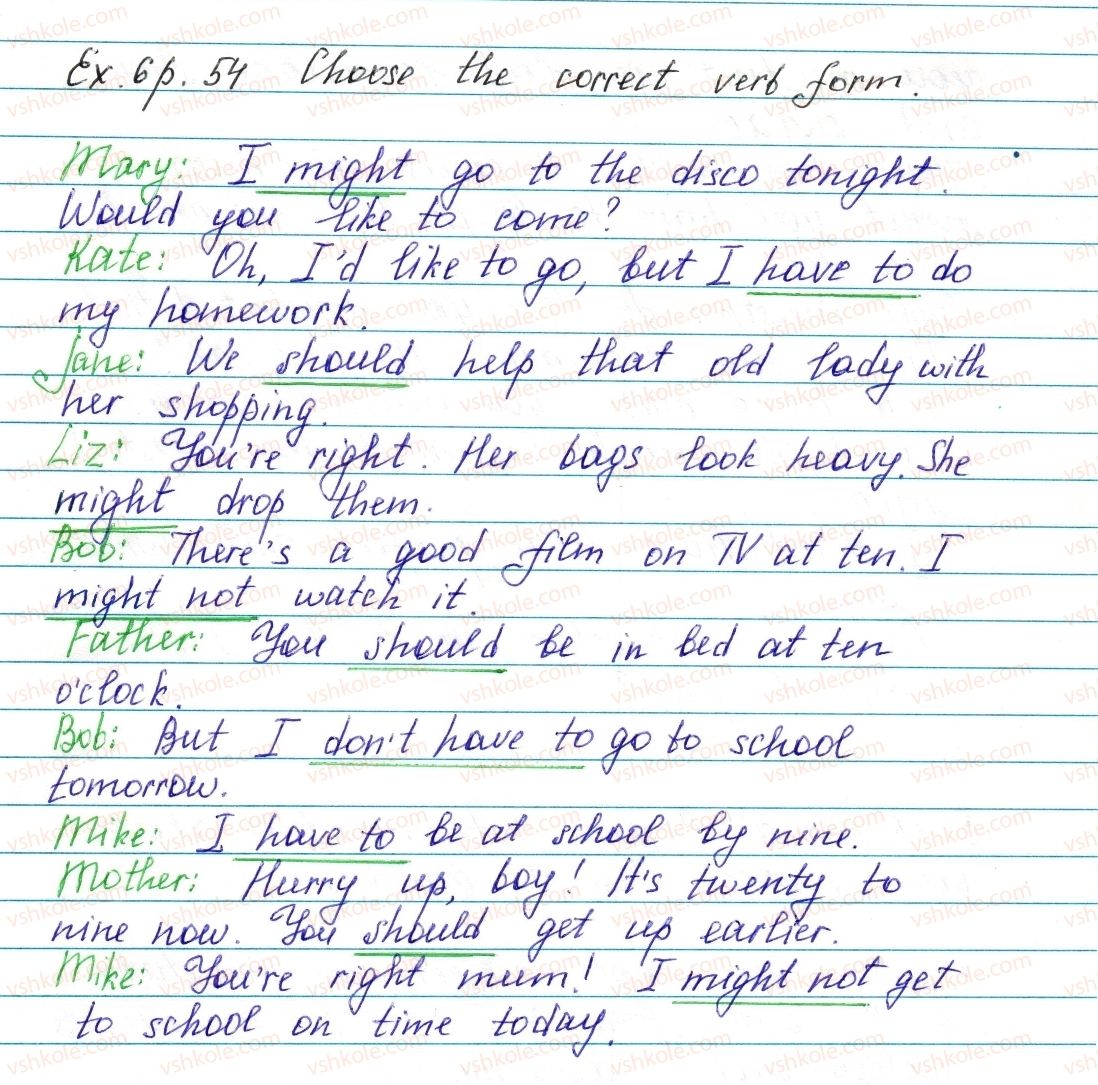 Ex. 6 p. 54 Choose the correct verb form.
Mary: I might go to the disco tonight.
Would you like to come?
Kate: Oh, I'd like to go, but I have to do
my homework.
Jane: We should help that old lady with
her shopping.
Liz: You're right. Her bags look heavy. She
might drop them.
Bob: There's a good film on TV at ten. I
might not watch it.
Father: You should be in bed at ten
o'clock.
Bob: But I don't have to go to school
tomorrow.
Mike: I have to be at school by nine.
Mother: Hurry up, boy! It's twenty to
nine now. You should get up earlier.
Mike: You're right mum! I might not get
to school on time today.
vshkole.com